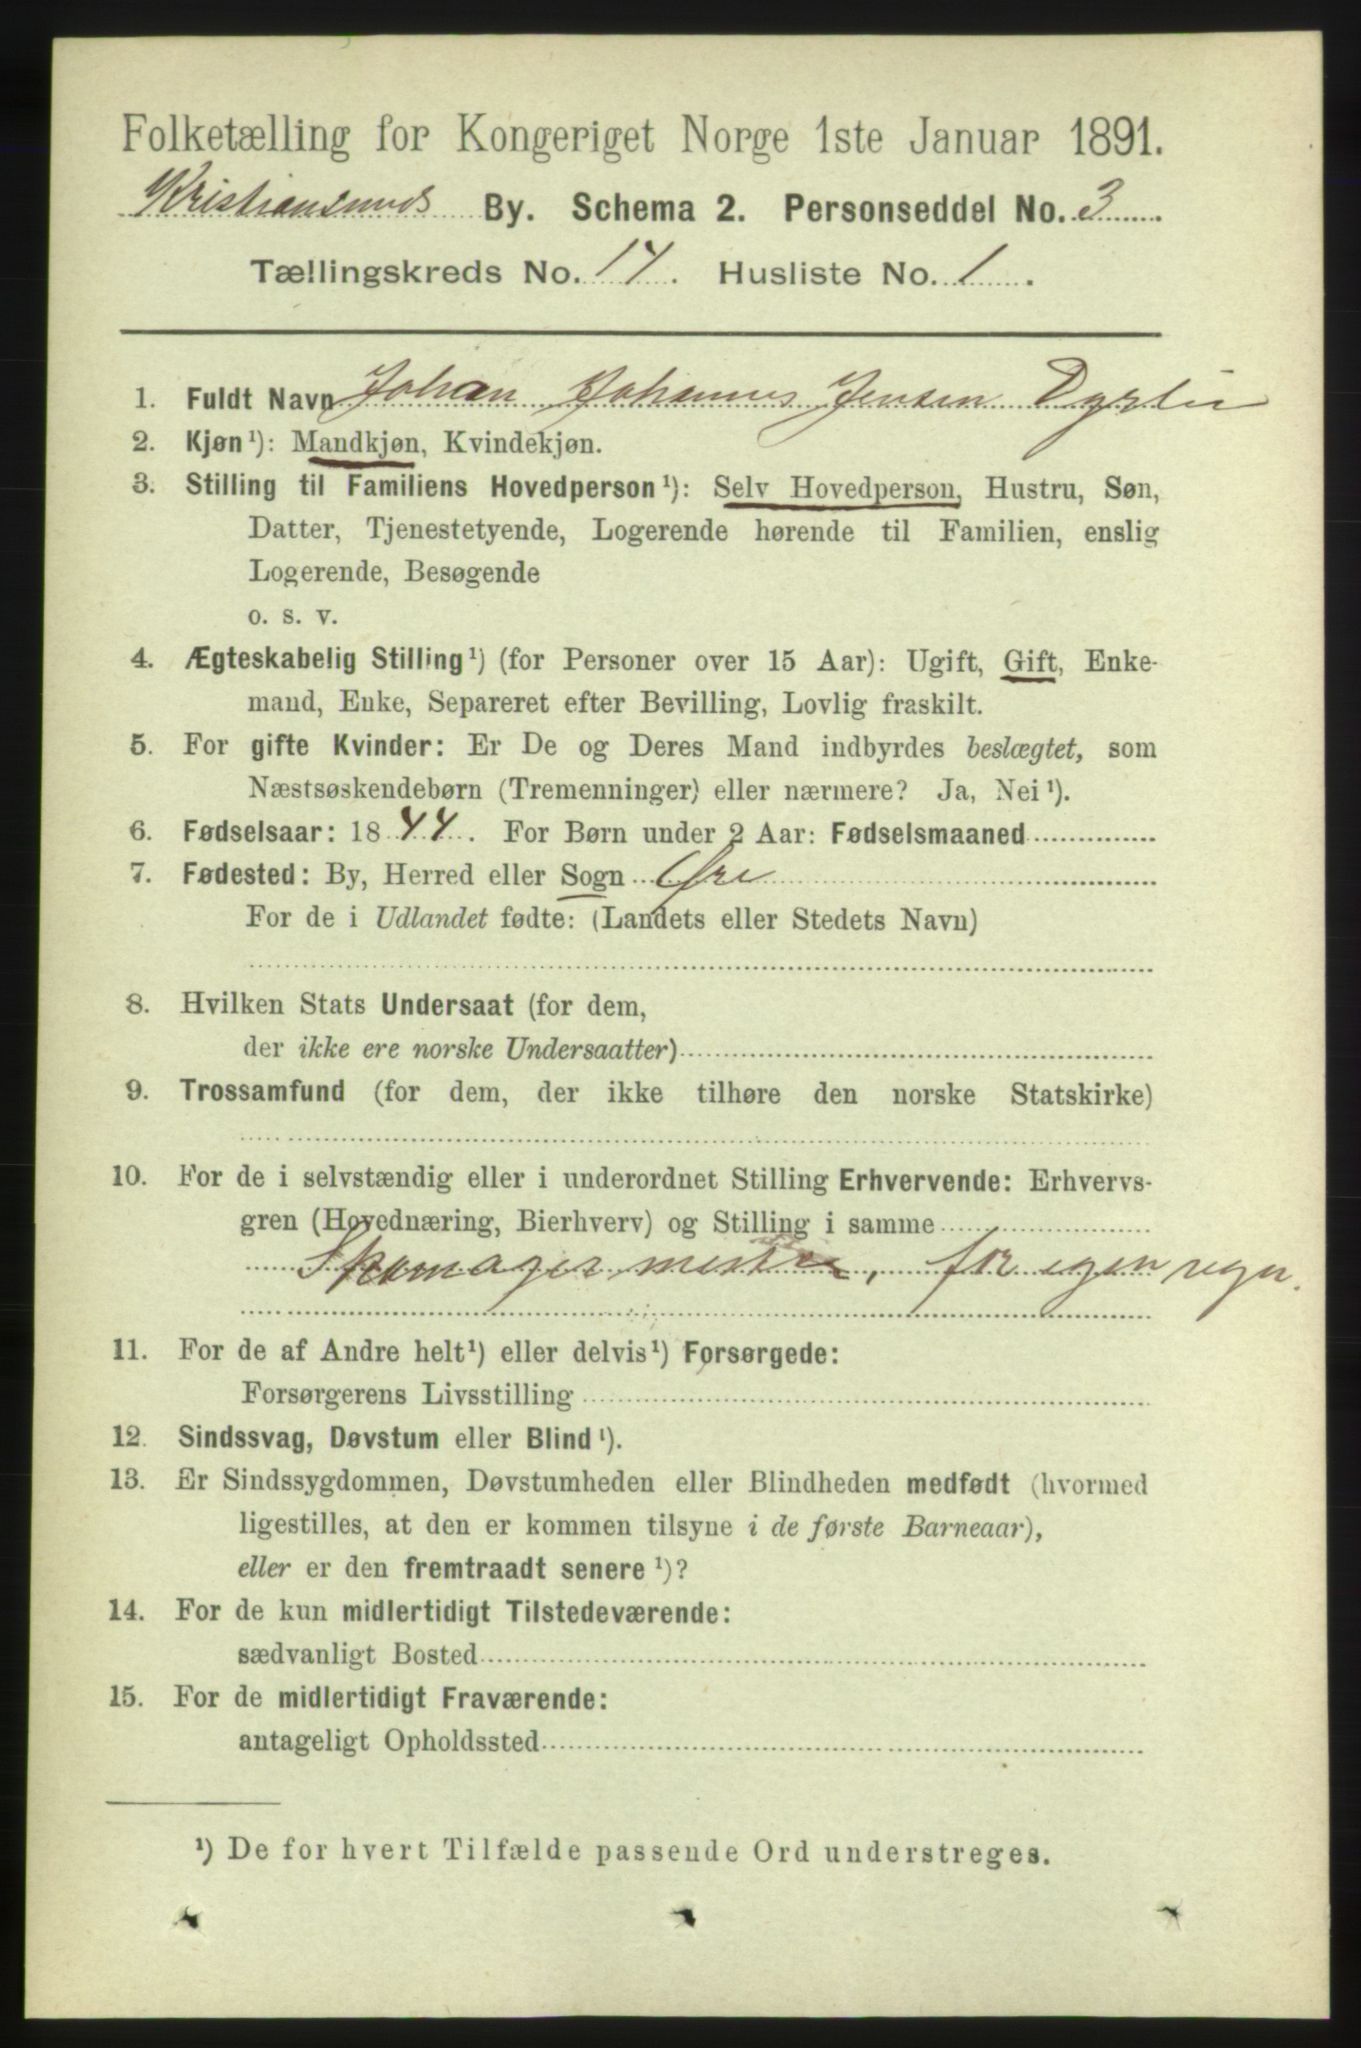 Folketælling for Kongeriget Norge 1ste Januar 1891.
Kristiansunds By. Schema 2. Personseddel No. 3.
Tællingskreds No. 14. Husliste No. 1.
1. Fuldt Navn Johan Johannes Jensen
2. Kjøn¹): Mandkjøn, Kvindekjøn.
3. Stilling til Familiens Hovedperson¹): Selv Hovedperson, Hustru, Søn,
Datter, Tjenestetyende, Logerende hørende til Familien, enslig
Logerende, Besøgende
o. s. v.
4. Ægteskabelig Stilling¹) (for Personer over 15 Aar): Ugift, Gift, Enke-
mand, Enke, Separeret efter Bevilling, Lovlig fraskilt.
5. For gifte Kvinder: Er De og Deres Mand indbyrdes beslægtet, som
Næstsøskendebørn (Tremenninger) eller nærmere? Ja, Nei¹).
6. Fødselsaar: 1844. For Børn under 2 Aar: Fødselsmaaned
7. Fødested: By, Herred eller Sogn Øre
For de i Udlandet fødte: (Landets eller Stedets Navn)
8. Hvilken Stats Undersaat (for dem,
der ikke ere norske Undersaatter)
9. Trossamfund (for dem, der ikke tilhøre den norske Statskirke)
10. For de i selvstændig eller i underordnet Stilling Erhvervende: Erhvervs-
gren (Hovednæring, Bierhverv) og Stilling i samme
Skomagermester, for egen regn.
11. For de af Andre helt¹) eller delvis¹) Forsørgede:
Forsørgerens Livsstilling
12. Sindssvag, Døvstum eller Blind¹).
13. Er Sindssygdommen, Døvstumheden eller Blindheden medfødt (hvormed
ligestilles, at den er kommen tilsyne i de første Barneaar),
eller er den fremtraadt senere¹)?
14. For de kun midlertidigt Tilstedeværende:
sædvanligt Bosted
15. For de midlertidigt Fraværende:
antageligt Opholdssted
¹) De for hvert Tilfælde passende Ord understreges.